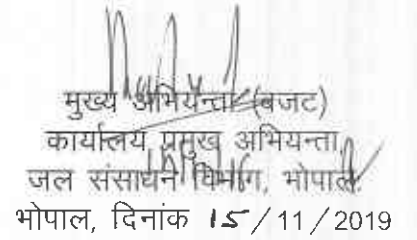 मुख्य अभियन्ता (बजट)
कार्यालय प्रमुख अभियन्ता,
जल संसाधन विभाग, भोपाल.
भोपाल, दिनांक 15/11/2019